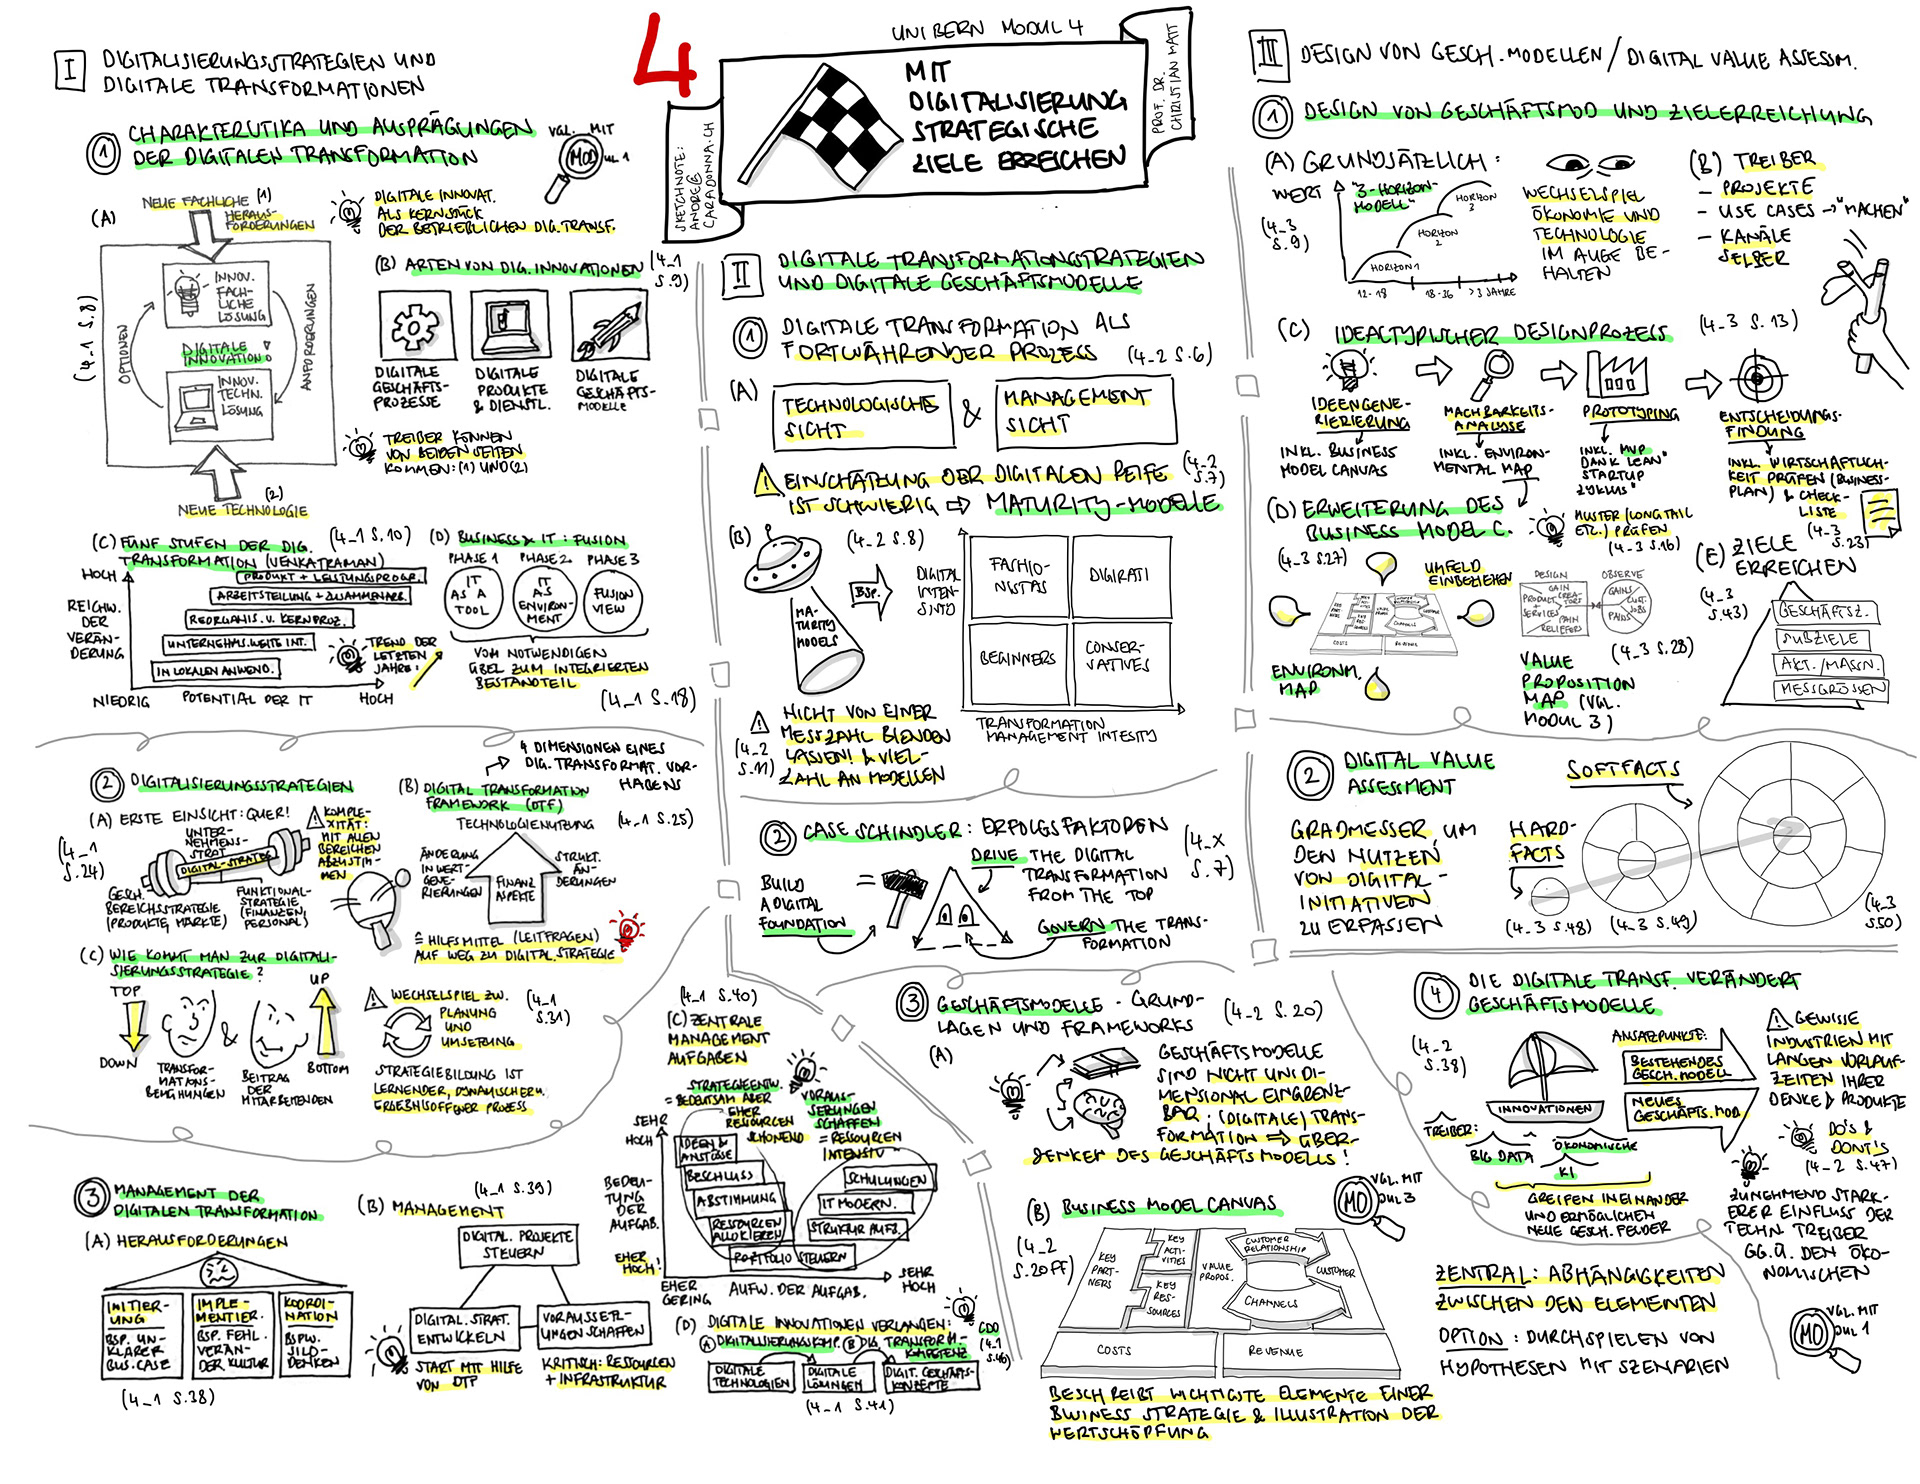 UNIBERN MODUL 4
4
MIT
DIGITALISIERUNG
STRATEGISCHE
ZIELE ERREICHEN
SKETCHNOTE:
ANDRE@
CARADONNA.CH
PROF. DR.
CHRISTIAN MATT
I DIGITALISIERUNGSSTRATEGIEN UND
DIGITALE TRANSFORMATIONEN
1 CHARAKTERISTIKA UND AUSPRÄGUNGEN
DER DIGITALEN TRANSFORMATION
VGL. MIT
MODUL 1
(A)
NEUE FACHLICHE (1)
HERAUS-
FORDERUNGEN
(4_1 S.8)
INNOV.
FACH-
LICHE
LÖSUNG
OPTIONEN
ANFORDERUNGEN
DIGITALE
INNOVATION
INNOV.
TECHN.
LÖSUNG
(2)
NEUE TECHNOLOGIE
DIGITALE INNOVAT.
ALS KERNSTÜCK
DER BETRIEBLICHEN DIG. TRANSF.
(B) ARTEN VON DIG. INNOVATIONEN
(4_1
S.9)
DIGITALE
GESCHÄFTS-
PROZESSE
DIGITALE
PRODUKTE
& DIENSTL.
DIGITALE
GESCHÄFTS-
MODELLE
TREIBER KÖNNEN
VON BEIDEN SEITEN
KOMMEN: (1) UND (2)
(C) FÜNF STUFEN DER DIG.
TRANSFORMATION (VENKATRAMAN)
(4_1 S.10)
HOCH
REICHW.
DER
VERÄN-
DERUNG
PRODUKT + LEISTUNGSPROGR.
ARBEITSTEILUNG + ZUSAMMENARB.
REORGANIS. V. KERNPROZ.
UNTERNEHMS.WEITE INT.
IN LOKALEN ANWEND.
TREND DER
LETZTEN
JAHRE:
NIEDRIG
POTENTIAL DER IT
HOCH
(D) BUSINESS & IT: FUSION
PHASE 1
PHASE 2
PHASE 3
IT
AS A
TOOL
IT
AS
ENVIRON-
MENT
FUSION
VIEW
VOM NOTWENDIGEN
ÜBEL ZUM INTEGRIERTEN
BESTANDTEIL
(4_1 S.18)
2 DIGITALISIERUNGSSTRATEGIEN
(A) ERSTE EINSICHT: QUER!
(4_1
S.24)
UNTER-
NEHMENS-
STRAT
DIGITAL-STRATEG
GESCH.
BEREICHSSTRATEGIE
(PRODUKTE, MÄRKTE)
FUNKTIONAL-
STRATEGIE
(FINANZEN,
PERSONAL)
KOMPLE-
XITÄT:
MIT ALLEN
BEREICHEN
ABZUSTIM-
MEN
4 DIMENSIONEN EINES
DIG. TRANSFORMAT. VOR-
HABENS
(B) DIGITAL TRANSFORMATION
FRAMEWORK (DTF)
TECHNOLOGIENUTZUNG
(4_1 S.25)
ÄNDERUNG
IN WERT-
GENE-
RIERUNGEN
FINANZ
ASPEKTE
STRUKT.
ÄN-
DERUNGEN
= HILFSMITTEL (LEITFRAGEN)
AUF WEG ZU DIGITAL.STRATEGIE
(C) WIE KOMMT MAN ZUR DIGITALI-
SIERUNGSSTRATEGIE?
TOP
DOWN
TRANSFOR-
MATIONS-
BEMÜHUNGEN
&
BEITRAG
DER
MITARBEITENDEN
UP
BOTTOM
WECHSELSPIEL ZW.
PLANUNG
UND
UMSETZUNG
(4_1
S.31)
STRATEGIEBILDUNG IST
LERNENDER, DYNAMISCHER U.
ERGEBNISOFFENER PROZESS
3 MANAGEMENT DER
DIGITALEN TRANSFORMATION
(A) HERAUSFORDERUNGEN
INITIIER-
UNG
BSP. UN-
KLARER
BUS.CASE
IMPLE-
MENTIER.
BSP. FEHL.
VERÄN-
DER KULTUR
KOORDI-
NATION
BSPW.
SILO-
DENKEN
(4_1 S.38)
(4_1 S.39)
(B) MANAGEMENT
DIGITAL. PROJEKTE
STEUERN
DIGITAL. STRAT.
ENTWICKELN
VORAUSSETZ-
UNGEN SCHAFFEN
START MIT HILFE
VON DTF
KRITISCH: RESSOURCEN
+ INFRASTRUKTUR
(4_1 S.40)
(C) ZENTRALE
MANAGEMENT
AUFGABEN
STRATEGIEENTW.
= BEDEUTSAM ABER
EHER
RESSOURCEN
SCHONEND
VORAUS-
SETZUNGEN
SCHAFFEN
= RESSOURCEN
INTENSIV
SEHR
HOCH
BEDEU-
TUNG
DER
AUFGAB.
EHER
HOCH!
IDEEN &
ANSTÖSSE
BESCHLUSS
ABSTIMMUNG
RESSOURCEN
ALLOKIEREN
PORTFOLIO STEUERN
SCHULUNGEN
IT MODERN.
STRUKTUR AUFB.
EHER
GERING
AUFW. DER AUFGAB.
SEHR
HOCH
(D) DIGITALE INNOVATIONEN VERLANGEN:
(A) DIGITALISIERUNGSKOMP. (B) DIG. TRANSFORM-
KOMPETENZ
CDO
(4_1
S.46)
DIGITALE
TECHNOLOGIEN
DIGITALE
LÖSUNGEN
DIGIT. GESCHÄFTS-
KONZEPTE
(4_1 S.41)
II DIGITALE TRANSFORMATIONSTRATEGIEN
UND DIGITALE GESCHÄFTSMODELLE
1 DIGITALE TRANSFORMATION ALS
FORTWÄHRENDER PROZESS (4_2 S.6)
(A)
TECHNOLOGISCHE
SICHT
&
MANAGEMENT
SICHT
EINSCHÄTZUNG DER DIGITALEN REIFE
IST SCHWIERIG ⇨ MATURITY-MODELLE
(4_2
S.7)
(B)
(4_2 S.8)
MA-
TURITY
MODELS
BSP.
DIGITAL
INTEN-
SINTD
FASHIO-
NISTAS
DIGIRATI
BEGINNERS
CONSER-
VATIVES
TRANSFORMATION
MANAGEMENT INTESITY
NICHT VON EINER
MESSZAHL BLENDEN
LASSEN! & VIEL-
ZAHL AN MODELLEN
(4_2
S.11)
2 CASE SCHINDLER: ERFOLGSFAKTOREN
(4_X
S.7)
DRIVE THE DIGITAL
TRANSFORMATION
FROM THE TOP
BUILD
A DIGITAL
FOUNDATION
=
GOVERN THE TRANS-
FORMATION
3 GESCHÄFTSMODELLE - GRUND-
LAGEN UND FRAMEWORKS
(4_2 S.20)
(A)
GESCHÄFTSMODELLE
SIND NICHT UNIDI-
MENSIONAL EINGRENZ-
BAR: (DIGITALE) TRANS-
FORMATION ⇒ ÜBER-
DENKEN DES GESCHÄFTSMODELLS!
(B) BUSINESS MODEL CANVAS
VGL. MIT
MODUL 3
(4_2
S.20FF)
KEY
PART-
NERS
KEY
ACTI-
VITIES
KEY
RES-
SOURCES
VALUE
PROPOS.
CUSTOMER
RELATIONSHIP
CHANNELS
CUSTOMER
COSTS
REVENUE
BESCHREIBT WICHTIGSTE ELEMENTE EINER
BUSINESS STRATEGIE & ILLUSTRATION DER
WERTSCHÖPFUNG
4 DIE DIGITALE TRANSF. VERÄNDERT
GESCHÄFTSMODELLE
(4_2
S.38)
INNOVATIONEN
ANSATZPUNKTE:
BESTEHENDES
GESCH.MODELL
NEUES
GESCHÄFTS.MOD.
TREIBER:
BIG DATA
ÖKONOMISCHE
KI
GREIFEN INEINANDER
UND ERMÖGLICHEN
NEUE GESCH.FELDER
GEWISSE
INDUSTRIEN MIT
LANGEN VORLAUF-
ZEITEN IHRER
PRODUKTE
DO'S &
DONT'S
(4_2 S.47)
ZUNEHMEND STÄRK-
ERER EINFLUSS DER
TECHN. TREIBER
GG.Ü. DEN ÖKO-
NOMISCHEN
ZENTRAL: ABHÄNGIGKEITEN
ZWISCHEN DEN ELEMENTEN
OPTION: DURCHSPIELEN VON
HYPOTHESEN MIT SZENARIEN
VGL. MIT
MODUL 1
III DESIGN VON GESCH.MODELLEN / DIGITAL VALUE ASSESSM.
1 DESIGN VON GESCHÄFTSMOD UND ZIELERREICHUNG
(A) GRUNDSÄTZLICH:
WERT
(4_3
S.9)
"3-HORIZON-
MODELL"
HORIZON 1
HORIZON
2
HORIZON
3
12-18
18-36
>3 JAHRE
WECHSELSPIEL
ÖKONOMIE UND
TECHNOLOGIE
IM AUGE BE-
HALTEN
(B) TREIBER
- PROJEKTE
- USE CASES → "MACHEN"
- KANÄLE
SELBER
(C) IDEALTYPISCHER DESIGNPROZESS (4_3 S.13)
IDEENGENE-
RIERIERUNG
INKL. BUSINESS
MODEL CANVAS
MACHBARKEITS-
ANALYSE
INKL. ENVIRON-
MENTAL MAP
PROTOTYPING
INKL. MVP
DANK "LEAN
STARTUP
ZYKLUS"
ENTSCHEIDUNGS-
FINDUNG
INKL. WIRTSCHAFTLICH-
KEIT PRÜFEN (BUSINESS-
PLAN) & CHECK-
LISTE
(4_3
S.23)
MUSTER (LONGTAIL
ETC.) PRÜFEN
(4_3 S.16)
(D) ERWEITERUNG DES
BUSINESS MODEL C.
(4_3 S.27)
UMFELD
EINBEZIEHEN
COSTS
REVENUE
CHANNELS
ENVIRONM.
MAP
DESIGN
GAIN
CREA-
TORS
PRODUCT
+
SERVICES
PAIN
RELIEFERS
OBSERVE
GAINS
CUST.
JOBS
PAINS
(4_3 S.28)
VALUE
PROPOSITION
MAP (VGL.
MODUL 3)
(E) ZIELE
ERREICHEN
(4_3
S.43)
GESCHÄFTSZ.
SUBZIELE
AKT./MASSN.
MESSGRÖSSEN
2 DIGITAL VALUE
ASSESMENT
SOFTFACTS
GRADMESSER, UM
DEN NUTZEN
VON DIGITAL-
INITIATIVEN
ZU ERFASSEN
HARD-
FACTS
(4_3 S.48)
(4_3 S.49)
(4_3
S.50)